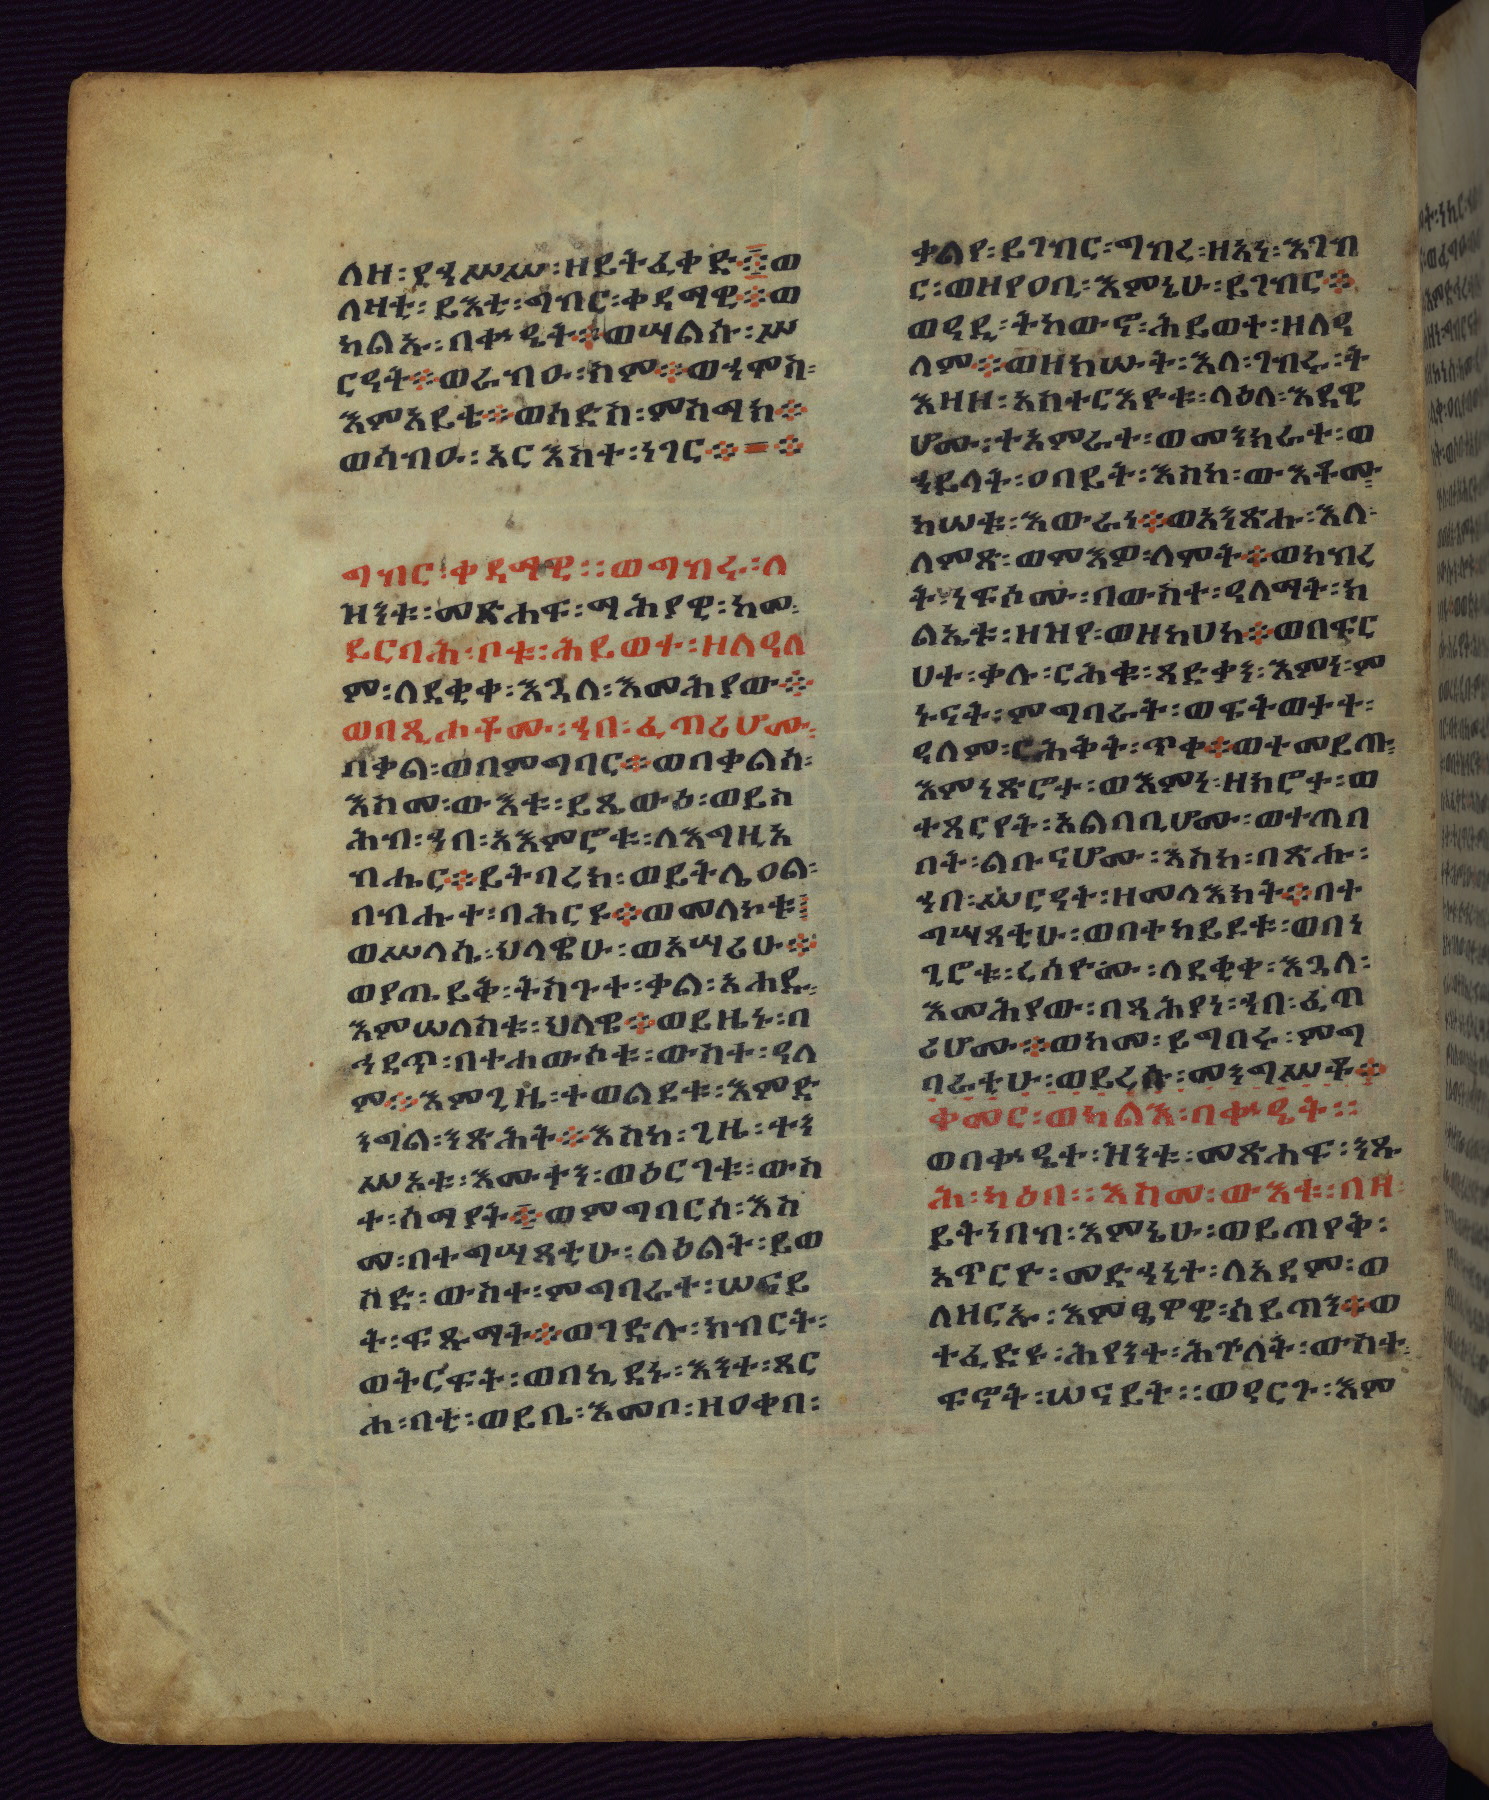 ለዘ፡ ያኅሥሥ፡ ዘይትፈቀድ፨ ወ
ለዛቲ፡ ይእቲ፡ ግብር፡ ቀዳማዊ፨ ወ
ካልኡ፡ በቍዒት፨ ወሣልሱ፡ ሥ
ርዓት፨ ወራብዑ፡ ስም፨ ወኃምስ፡
እምአይቴ፨ ወሳድስ፡ ምስማክ፨
ወሳብዑ፡ አርእስተ፡ ነገር፨
ግብር፡ ቀዳማዊ፡፡ ወግብሩ፡ ለ
ዝንቱ፡ መጽሐፍ፡ ማሕያዊ፡ ከመ፡
ይርባሕ፡ ቦቱ፡ ሕይወተ፡ ዘለዓለ
ም፡ ለደቂቀ፡ እጓለ፡ እመሕያው፨
ወበጺሖቶሙ፡ ኀበ፡ ፈጣሪሆሙ፡
በቃል፡ ወበምግባር፨ ወበቃልሰ፡
እስመ፡ ውእቱ፡ ይጼውዕ፡ ወይስ
ሕብ፡ ኀበ፡ አእምሮቱ፡ ለእግዚአ
ብሔር፨ ይትባረክ፡ ወይትሌዐል፡
በብሑተ፡ ባሕርይ፨ ወመለኮቱ፡
ወሥላሴ፡ ህላዌሁ፡ ወአሣሪሁ፨
ወያጤይቅ፡ ትስጉተ፡ ቃል፡ አሐዱ፡
እምሠለስቱ፡ ህላዌ፨ ወይዜኑ፡ በ
ኀደጥ፡ በተሐውሶቱ፡ ውስተ፡ ዓለ
ም፨ እምጊዜ፡ ተወልደቱ፡ እምድ
ንግል፡ ንጽሕት፨ እስከ፡ ጊዜ፡ ተን
ሥአቱ፡ እሙተን፡ ወዕርገቱ፡ ውስ
ተ፡ ሰማያት፨ ወምግባርሰ፡ እስ
መ፡ በተግሣጻቲሁ፡ ልዕልት፡ ይወ
ስድ፡ ውስተ፡ ምግባራተ፡ ሠናይ
ት፡ ፍጹማት፨ ወገድሉ፡ ክብርት፡
ወትርፍት፡ ወበኪዳኑ፡ እንተ፡ ጸር
ሐ፡ በቲ፡ ወይቤ፡ እመቦ፡ ዘዐቀበ፡
ቃልየ፡ ይገብር፡ ግብረ፡ ዘአነ፡ እገብ
ር፡ ወዘየዐቢ፡ እምኔሁ፡ ይገብር፨
ወዓዲ፡ ትከውኖ፡ ሕይወተ፡ ዘለዓ
ለም፨ ወዘከሡት፡ እለ፡ ገብሩ፡ ት
እዛዘ፡ አስተርእዮቱ፡ ላዕለ፡ እደዊ
ሆሙ፡ ተአምራተ፡ ወመንክራተ፡ ወ
ኀይላት፡ ዐበይት፡ እስከ፡ ውእቶሙ፡
ከሠቱ፡ እውራነ፨ ወአንጽሑ፡ እለ፡
ለምጽ፡ ወምእዎ፡ ለምት፨ ወከብረ
ት፡ ነፍሶሙ፡ በውስተ፡ ዓለማት፡ ክ
ልኤቱ፡ ዘዝየ፡ ወዘከሀከ፨ ወበፍር
ሀተ፡ ቃሉ፡ ርሕቁ፡ ጻድቃን፡ እምነ፡ ም
ኑናት፡ ምግባራት፡ ወፍትወታተ፡
ዓለም፡ ርሕቅት፡ ጥቀ፨ ወተመይጡ፡
እምነጽሮተ፡ ወእምነ፡ ዘክሮተ፡ ወ
ተጻርየት፡ አልባቢሆሙ፡ ወተጠበ
በት፡ ልቡናሆሙ፡ እስከ፡ በጽሑ፡
ኀበ፡ ሥርዓት፡ ዘመላእክት፨ በተ
ግሣጻቲሁ፡ ወበተከይዶቱ፡ ወበነ
ጊሮቱ፡ ረሰዮሙ፡ ለደቂቀ፡ እጓለ፡
እመሕያው፡ በጻሕያነ፡ ኀበ፡ ፈጣ
ሪሆሙ፨ ወከመ፡ ይግበሩ፡ ምግ
ባራቲሁ፡ ወይረሱ፡ መንግሥቶ፨
ቀመር፡ ወካልእ፡ በቍዒት፡፡
ወበቍዔተ፡ ዝንቱ፡ መጽሐፍ፡ ንጹ
ሕ፡ ካዕበ፡፡ እስመ፡ ውእቱ፡ በዘ፡
ይትነበብ፡ እምኔሁ፡ ወይጠየቅ፡
አጥርዮ፡ መድኀኒት፡ ለአዳም፡ ወ
ለዘርኡ፡ እምፄዋዊ፡ ሰይጣን፨ ወ
ተፈድዩ፡ ሕየንተ፡ ሕፕለት፡ ውስተ፡
ፍኖት፡ ሠናይት፡፡ ወዓርጉ፡ እም